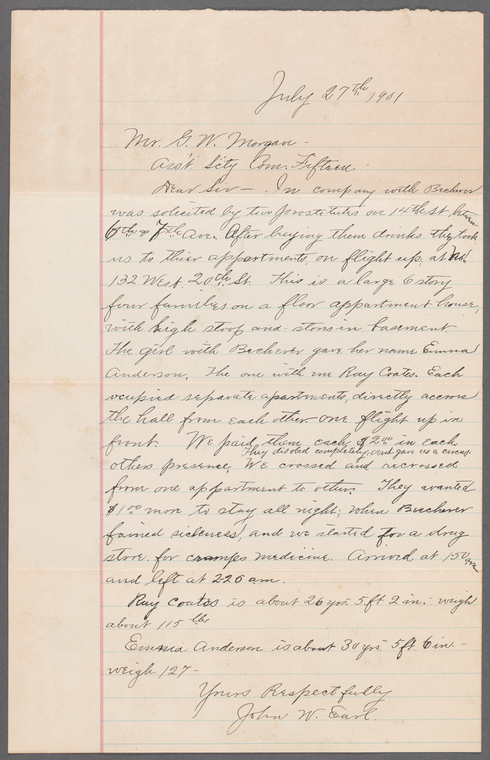 July 27th 1901
Mr. G. W. Morgan.
Asst. Scty Com. Fifteen.
Dear Sir - In company with Becherer
was solicited by two prostitutes on 14th St. betw
6th & 7th Ave. After buying them drinks they took
us to their appartments on flight up, at No.
132 West. 20th St. This is a large 6 story
four families on a floor appartment house,
with high stoop and stores in basement
The girl with Becherer gave her name Emma
Anderson. The one with me Ray Coates. Each
occupied separate apartments, directly accross
the hall from each other one flight up in
front. We paid them each $2.00 in each
They disrobed completely, and gave us a circus.
others presence. We crossed and recrossed
from one appartment to other. They wanted
$1.00 more to stay all night; when Becherer
fained sickness, and we started for a drug
store. for cramps medicine. Arrived at 150 am
and left at 220 am.
Ray Coates is about 26 yrs 5 ft 2 in. weigh
about 115 lbs
Emma Anderson is about 30 yrs 5 ft. 6 in. -
weigh 127 -
Yours Respectfully
John W. Earl.